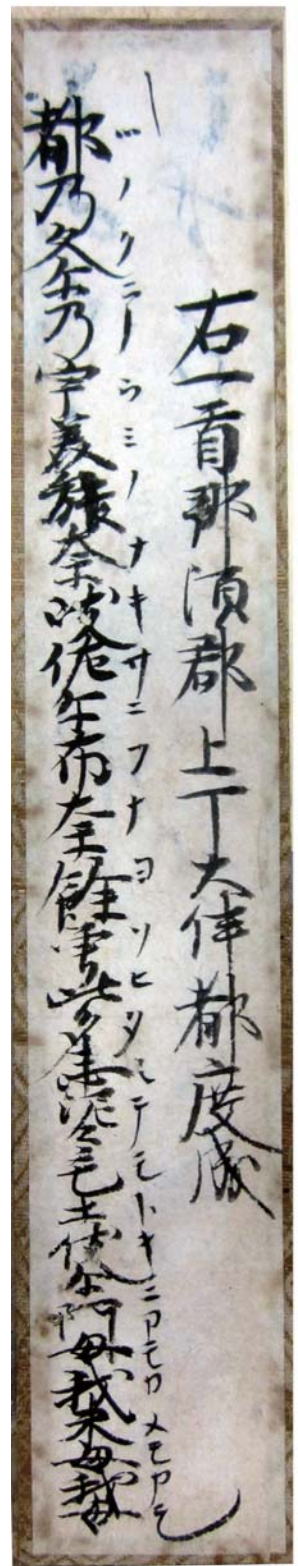 右一首那須郡上丁大伴都度成
ツノクニノウミノナキサニフナヨソヒタミテモトキニアモカメモカモ
都乃久尓乃宇美能奈岐佐尓布奈餘曽比多集泥毛土伎尓阿母我米母我母